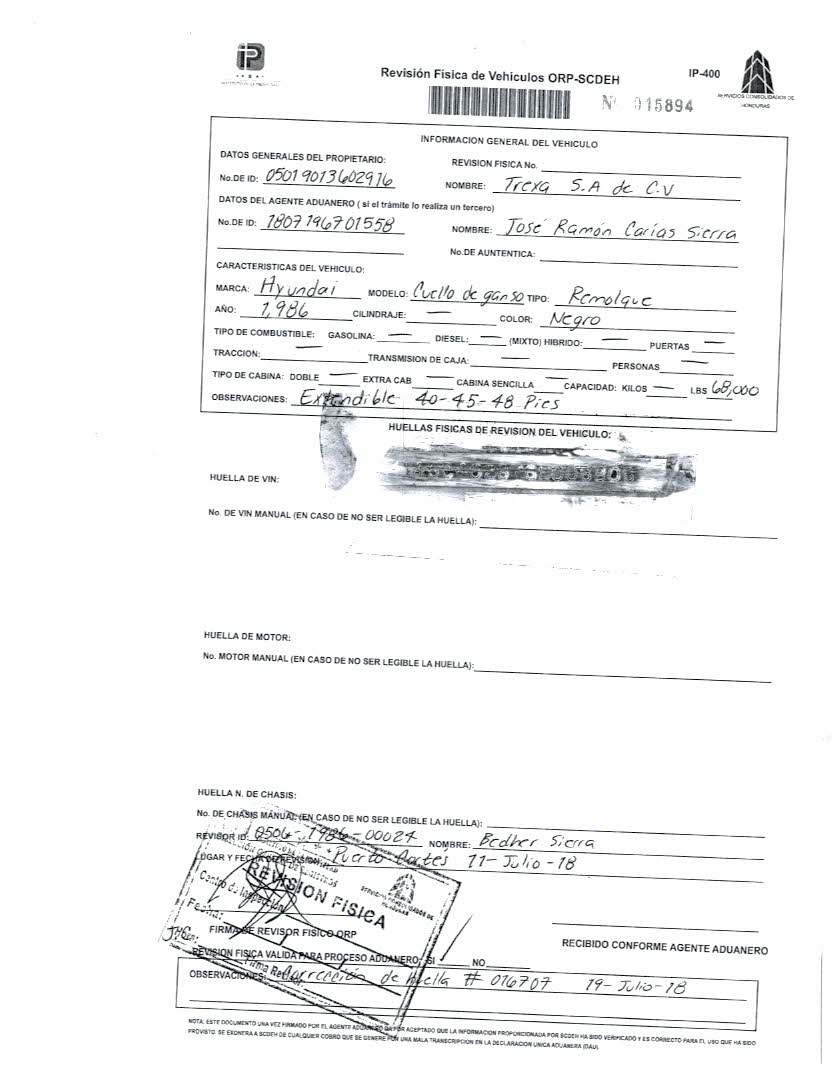 iP
Revisión Física de Vehículos ORP-SCDEH
IP-400
SERVICIOS CONSOLIDADOS DE
HONDURAS
Nº 015894
INFORMACION GENERAL DEL VEHICULO
DATOS GENERALES DEL PROPIETARIO:
REVISION FISICA No.
No.DE ID: 05019013602916
NOMBRE: Trexa S.A de C.V
DATOS DEL AGENTE ADUANERO ( si el trámite lo realiza un tercero)
No.DE ID: 1807196701558
NOMBRE: José Ramón Carías Sierra
No.DE AUNTENTICA:
CARACTERISTICAS DEL VEHICULO:
MARCA: Hyundai MODELO: Cuello de ganso TIPO: Remolque
AÑO: 1,986 CILINDRAJE: — COLOR: Negro
TIPO DE COMBUSTIBLE: GASOLINA: — DIESEL: — (MIXTO) HIBRIDO: — PUERTAS —
TRACCION: — TRANSMISION DE CAJA: — PERSONAS —
TIPO DE CABINA: DOBLE — EXTRA CAB — CABINA SENCILLA — CAPACIDAD: KILOS — LBS 68,000
OBSERVACIONES: Extendible 40-45-48 Pies
HUELLAS FISICAS DE REVISION DEL VEHICULO:
HUELLA DE VIN:
No. DE VIN MANUAL (EN CASO DE NO SER LEGIBLE LA HUELLA):
HUELLA DE MOTOR:
No. MOTOR MANUAL (EN CASO DE NO SER LEGIBLE LA HUELLA):
HUELLA N. DE CHASIS:
No. DE CHASIS MANUAL (EN CASO DE NO SER LEGIBLE LA HUELLA):
REVISOR ID: 0506-1986-00024 NOMBRE: Bedher Sierra
LUGAR Y FECHA DE REVISION: Puerto Cortés 11-Julio-18
REVISION FISICA
SERVICIOS CONSOLIDADOS DE
HONDURAS
Centro de Inspección
Fecha:
FIRMA DE REVISOR FISICO ORP
RECIBIDO CONFORME AGENTE ADUANERO
REVISION FISICA VALIDA PARA PROCESO ADUANERO: SI NO
Firma Revisor
OBSERVACIONES: Corrección de huella # 016707 19-Julio-18
NOTA: ESTE DOCUMENTO UNA VEZ FIRMADO POR EL AGENTE ADUANERO DA POR ACEPTADO QUE LA INFORMACION PROPORCIONADA POR SCDEH HA SIDO VERIFICADO Y ES CORRECTO PARA EL USO QUE HA SIDO
PROVISTO. SE EXONERA A SCDEH DE CUALQUIER COBRO QUE SE GENERE POR UNA MALA TRANSCRIPCION EN LA DECLARACION UNICA ADUANERA (DAU).